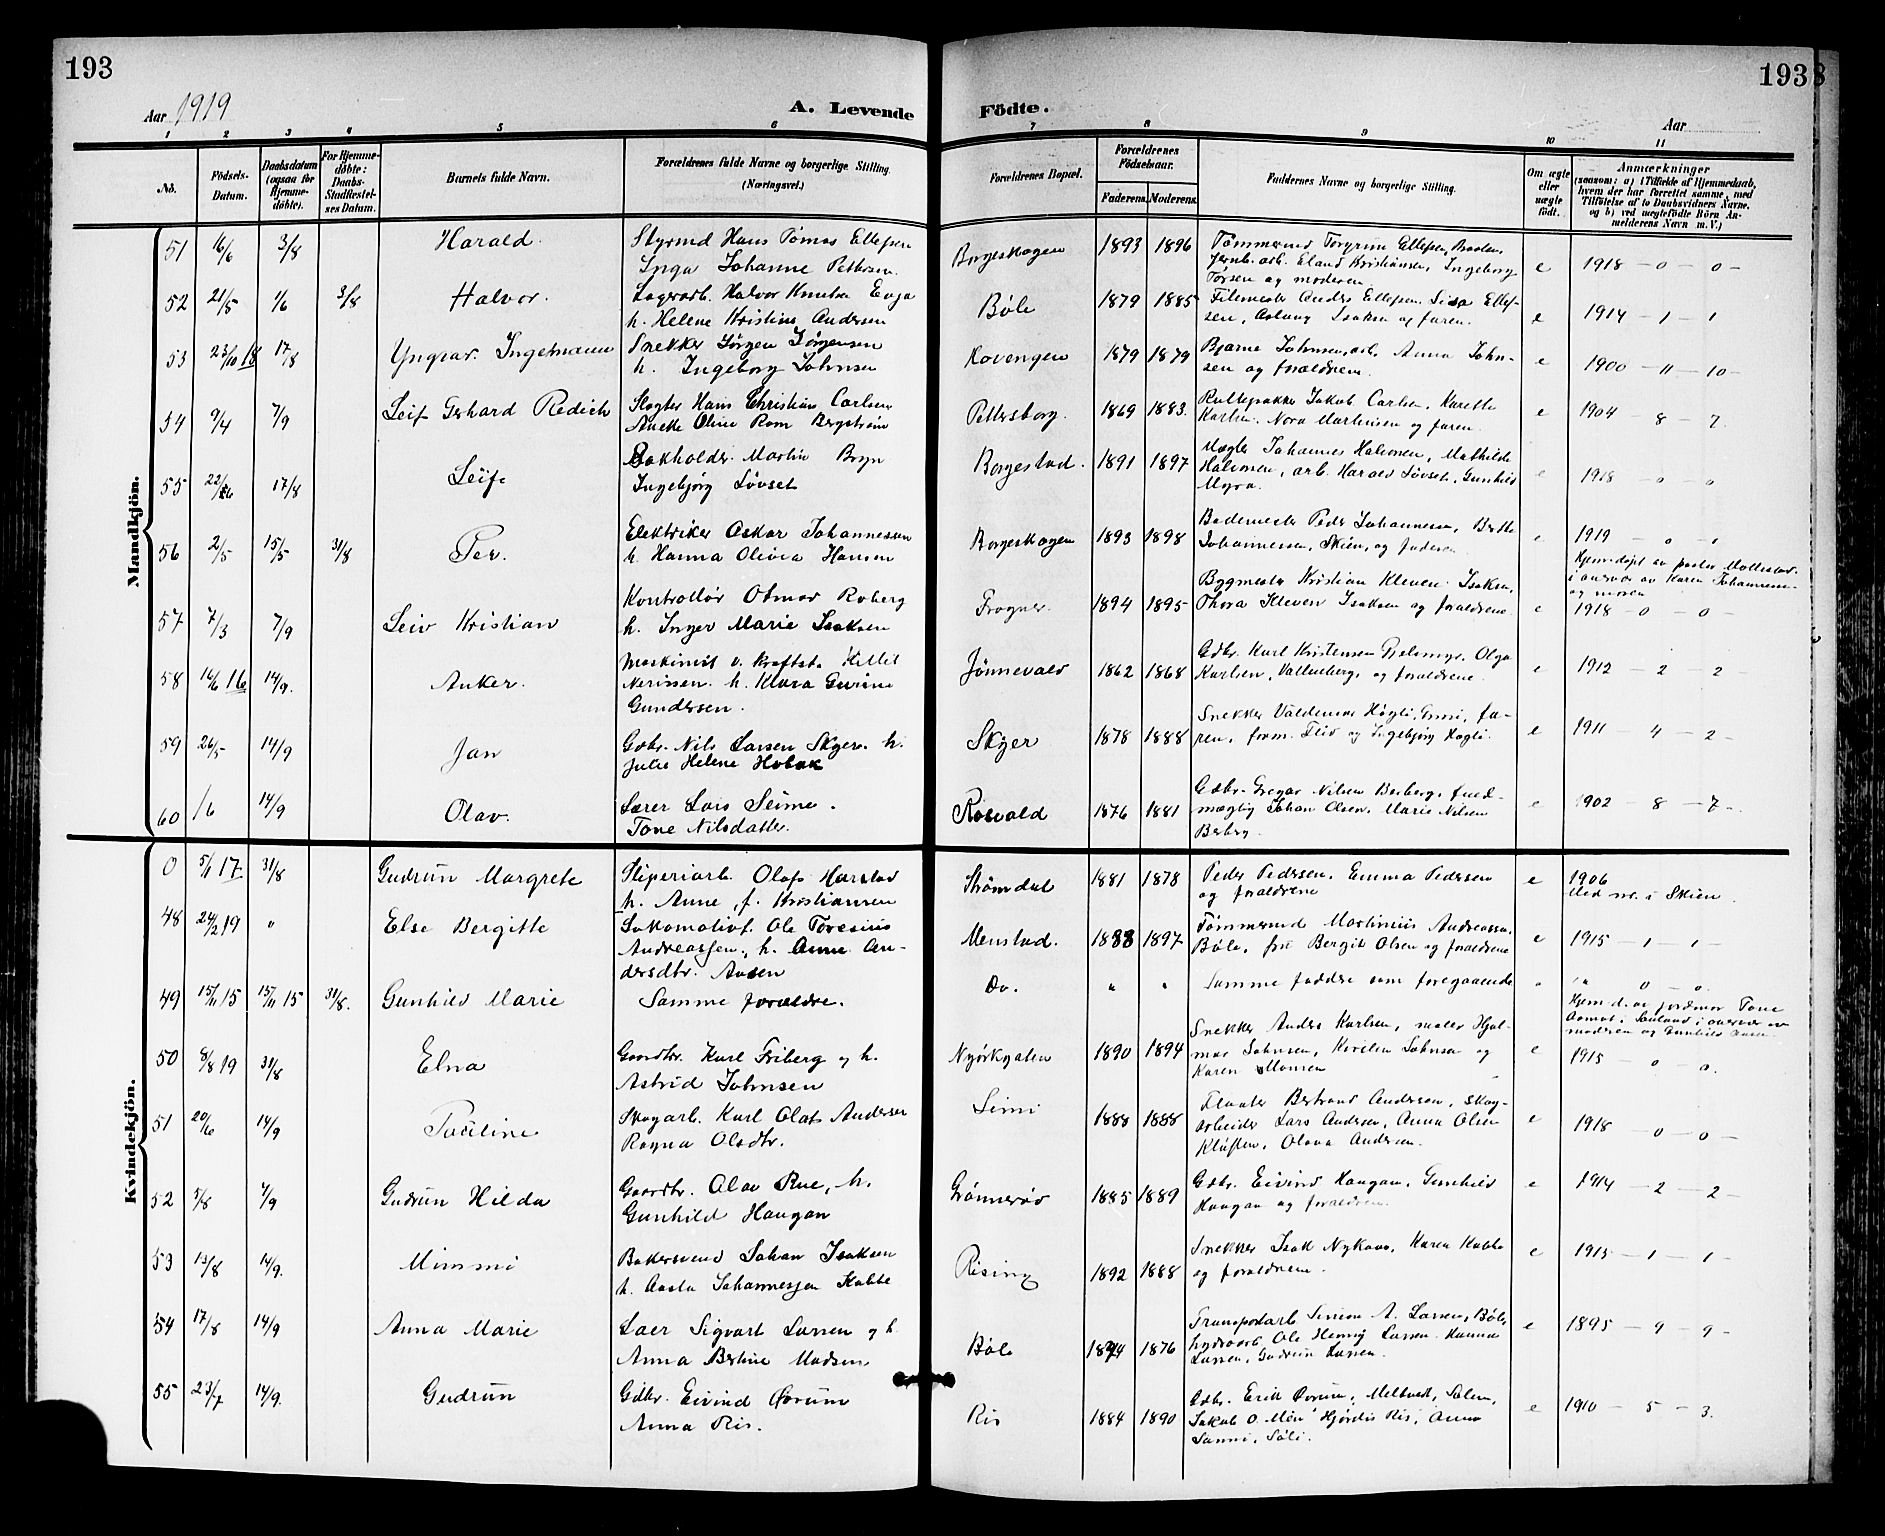 193
193
8
Aar 1919
A. Levende
Födte.
Aar
1 2 3 4 5 6 7 8 9 10 11
No.
Födsels-
Datum.
Daabsdatum
(ogsaa for
Hjemme-
döbte).
For Hjemme-
döbte:
Daabs-
Stadfæstel-
ses Datum.
Barnets fulde Navn.
Forældrenes fulde Navne og borgerlige Stilling
(Næringsvei.)
Forældrenes Bopæl.
Forældrenes
Födselsaar.
Faderens. Moderens.
Faddernes Navne og borgerlige Stilling.
Om ægte
eller
uægte
födt.
Anmærkninger
(saasom: a) i Tilfælde af Hjemmedaab,
hvem der har forrettet samme, med
Tilföielse af to Daabsvidners Navne.
og b) ved uægtefödte Börn An-
melderens Navn m. V.)
Mandkjön.
51 16/6 3/8 Harald. Styrmd Hans Tómas Ellefsen
Inga Johanne Pettersen.
Borgeskogen 1893 1896 Tømmermd Torgrim Ellefsen,
Jernb. arb. Eland Kristiansen, Ingeborg
Torsen og moderen e 1918 - 0 - 0 -
52 21/5 1/6 3/8 Halvor. Lagerarb. Halvor Knutsen Evja
h. Helene Kristine Andersen
Bøle 1879 1885 Filemester Anders Ellefsen. Lisa Ellef-
sen, Aslaug Isaksen og faren. e 1914 - 1 - 1
53 23/10 18 17/8 Yngvar. Ingemann Snekker Jørgen Jørgensen
h. Ingeborg Johnsen
Kovengen 1879 1879 Bjarne Johnsen, arb. Anna John-
sen og forældrene. e 1900 - 11 - 10 -
54 9/4 7/9 Leif Gerhard Redich Slagter Hans Christian Carlsen
Anette Oline Rom Bergstrøm
Pettersborg. 1869 1883. Jakob Carlsen, Karette
Karlsen. Nora Martinsen og faren. e 1904 - 8 - 7
55 22/6 17/8 Leif. Bokholder. Martin Bryn
Ingebjørg Løvset
Borgestad. 1891 1897 Mægler Johannes Halvorsen, Mathilde
Halvorsen, arb. Harald Løvset, Gunhild
Myra. e 1918 - 0 - 0
56 2/5 15/5 31/8 Per. Elektriker Oskar Johannessen
h. Hanna Olivia Hansen
Borgeskogen 1893 1898 Bademester Peder Johannesen, Berthe
Johannessen, Skien, og faderen e 1919 - 0 - 1
Hjem. døpt av pastor Mollestad
i nærvær av Karen Johannesen
og moren
57 7/3 7/9 Leiv Kristian Kontrollør Otmar Roberg
h. Inger Marie Isaksen
Frogner. 1894 1895 Bygmester Kristian Kleven Isaksen,
Thora Kleven Isaksen og forældrene e 1918 - 0 - 0 -
58 16/6 16 14/9. Anker. Maskinist v. kraftst. Kittil
Nerissen. h. Klara Gurine
Gundersen.
Jønnevald 1862 1868 Gdbr. Karl Kristensen Olga
Karlsen, Vallenberg og forældrene. e 1912 - 2 - 2 -
59 26/5 14/9 Jan Gdbr. Nils Larsen Skyer. h.
Julie Helene Hobæk
Skyer 1878 1888 Snekker Valdemar Høgli, Gmni, fa-
ren, frøkn. Fliv og Ingebjørg Høgli. e 1911 - 4 - 2 -
60 /6 14/9 Olav. Lærer Lars Seime.
Tone Nilsdatter.
Rosvald 1876 1881 Gdbr. Gregar Nilsen Berberg, fuld-
mægtig Johan Olsen. Marie Nilsen
Berberg. e 1902 - 8 - 7 -
Kvindekjön.
0 5/1 17 31/8 Gudrun Margrete Sliperiarb. Olaf Harstad
h. Anne, f. Kristiansen
Strømdal 1881 1878 Peder Pedersen, Emma Pedersen
og forældrene e 1906
Uid nr. i Skien.
48 24/2 19 " Else Bergitte Lokomotivf. Ole Toresius
Andreassen, h. Anne An-
dersdtr. Aasen
Menstad. 1888 1897 Tømmermd Martinius Andreassen,
Bøle, fru Bergit Olsen og forældrene e 1915 - 1 - 1 -
49 15/11 15 15/11 15 31/8. Gunhild Marie Samme forældre.
Do. " " Samme faddere som foregaaende " " 0 - 0.
Hjem. d. av jordmor Tone
Aamot i Sauland i nærvær av
moderen og Gunhild Aasen
50 8/8 19 31/8 Elna Gaardbr. Karl Friberg og h.
Astrid Johnsen
Nyørkgaten 1890 1894 Snekker Anders Karlsen, maler Hjal-
mar Johnsen, Karoline Johnsen og
Karen Monsen e 1915 - 0 - 0.
51 20/6 14/9 Pauline Skogarb. Karl Olaf Andersen
Ragna Olsdtr.
Limi 1888 1888 Fløter Bertrand Andersen, skog-
arbeider Lars Andersen, Anna Olsen
Kluften, Olava Andersen. e 1918 - 0 - 0 -
52 5/8 7/9 Gudrun Hilda Gaardbr. Olav Rue, h.
Gunhild Haugan
Grønnerød 1885 1889 Gdbr. Eivind Haugan, Gunhild
Haugan og forældrene. e 1914 - 2 - 2 -
53 13/8 14/9. Mimmi Bakersvend Johan Isaksen
h. Aasta Johannessen Kabbe
Rising 1892 1888 Snekker Isak Nykaas, Karen Kabbe
og forældrene. e 1915 - 1 - 1 -
54 17/8 14/9 Anna Marie Laer Sigvart Larsen og h.
Anna Bertine Madsen
Bøle 1874 1876 Transportarb Simon A. Larsen, Bøle,
hydroarb. Ole Henry Larsen. Hanna
Larsen, Gudrun Larsen. e 1895 - 9 - 9 -
55 23/7 14/9. Gudrun Gdbr. Eivind Ørum
Anna Ris.
Ris 1884 1890 Gdbr. Erik Ørum, Melkvedt, Solum,
Jakob O. Moen Hjørdis Ris, Anna
Sanni, Søli. e 1910 - 5 - 3.